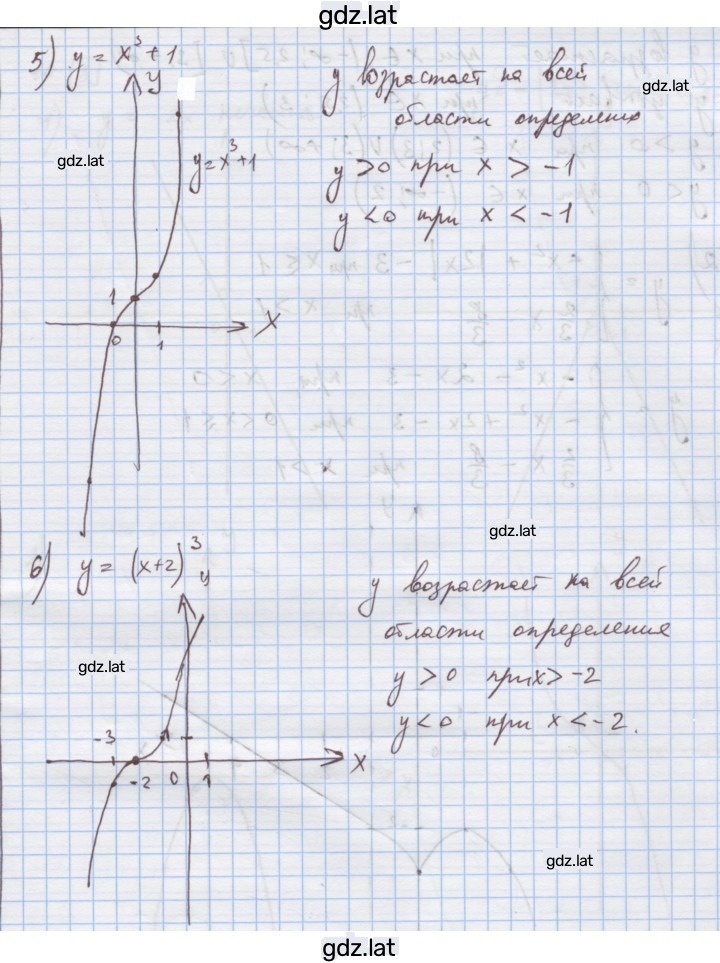 gdz.lat
5) y = x³ + 1
y
y возрастает на всей
области определения
gdz.lat
gdz.lat
y = x³ + 1
y > 0 при x > -1
y < 0 при x < -1
1
0
1
x
gdz.lat
6) y = (x+2)³
y
y возрастает на всей
области определения
gdz.lat
y > 0 при x > -2
y < 0 при x < -2.
-3
1
-2
0
1
x
gdz.lat
gdz.lat